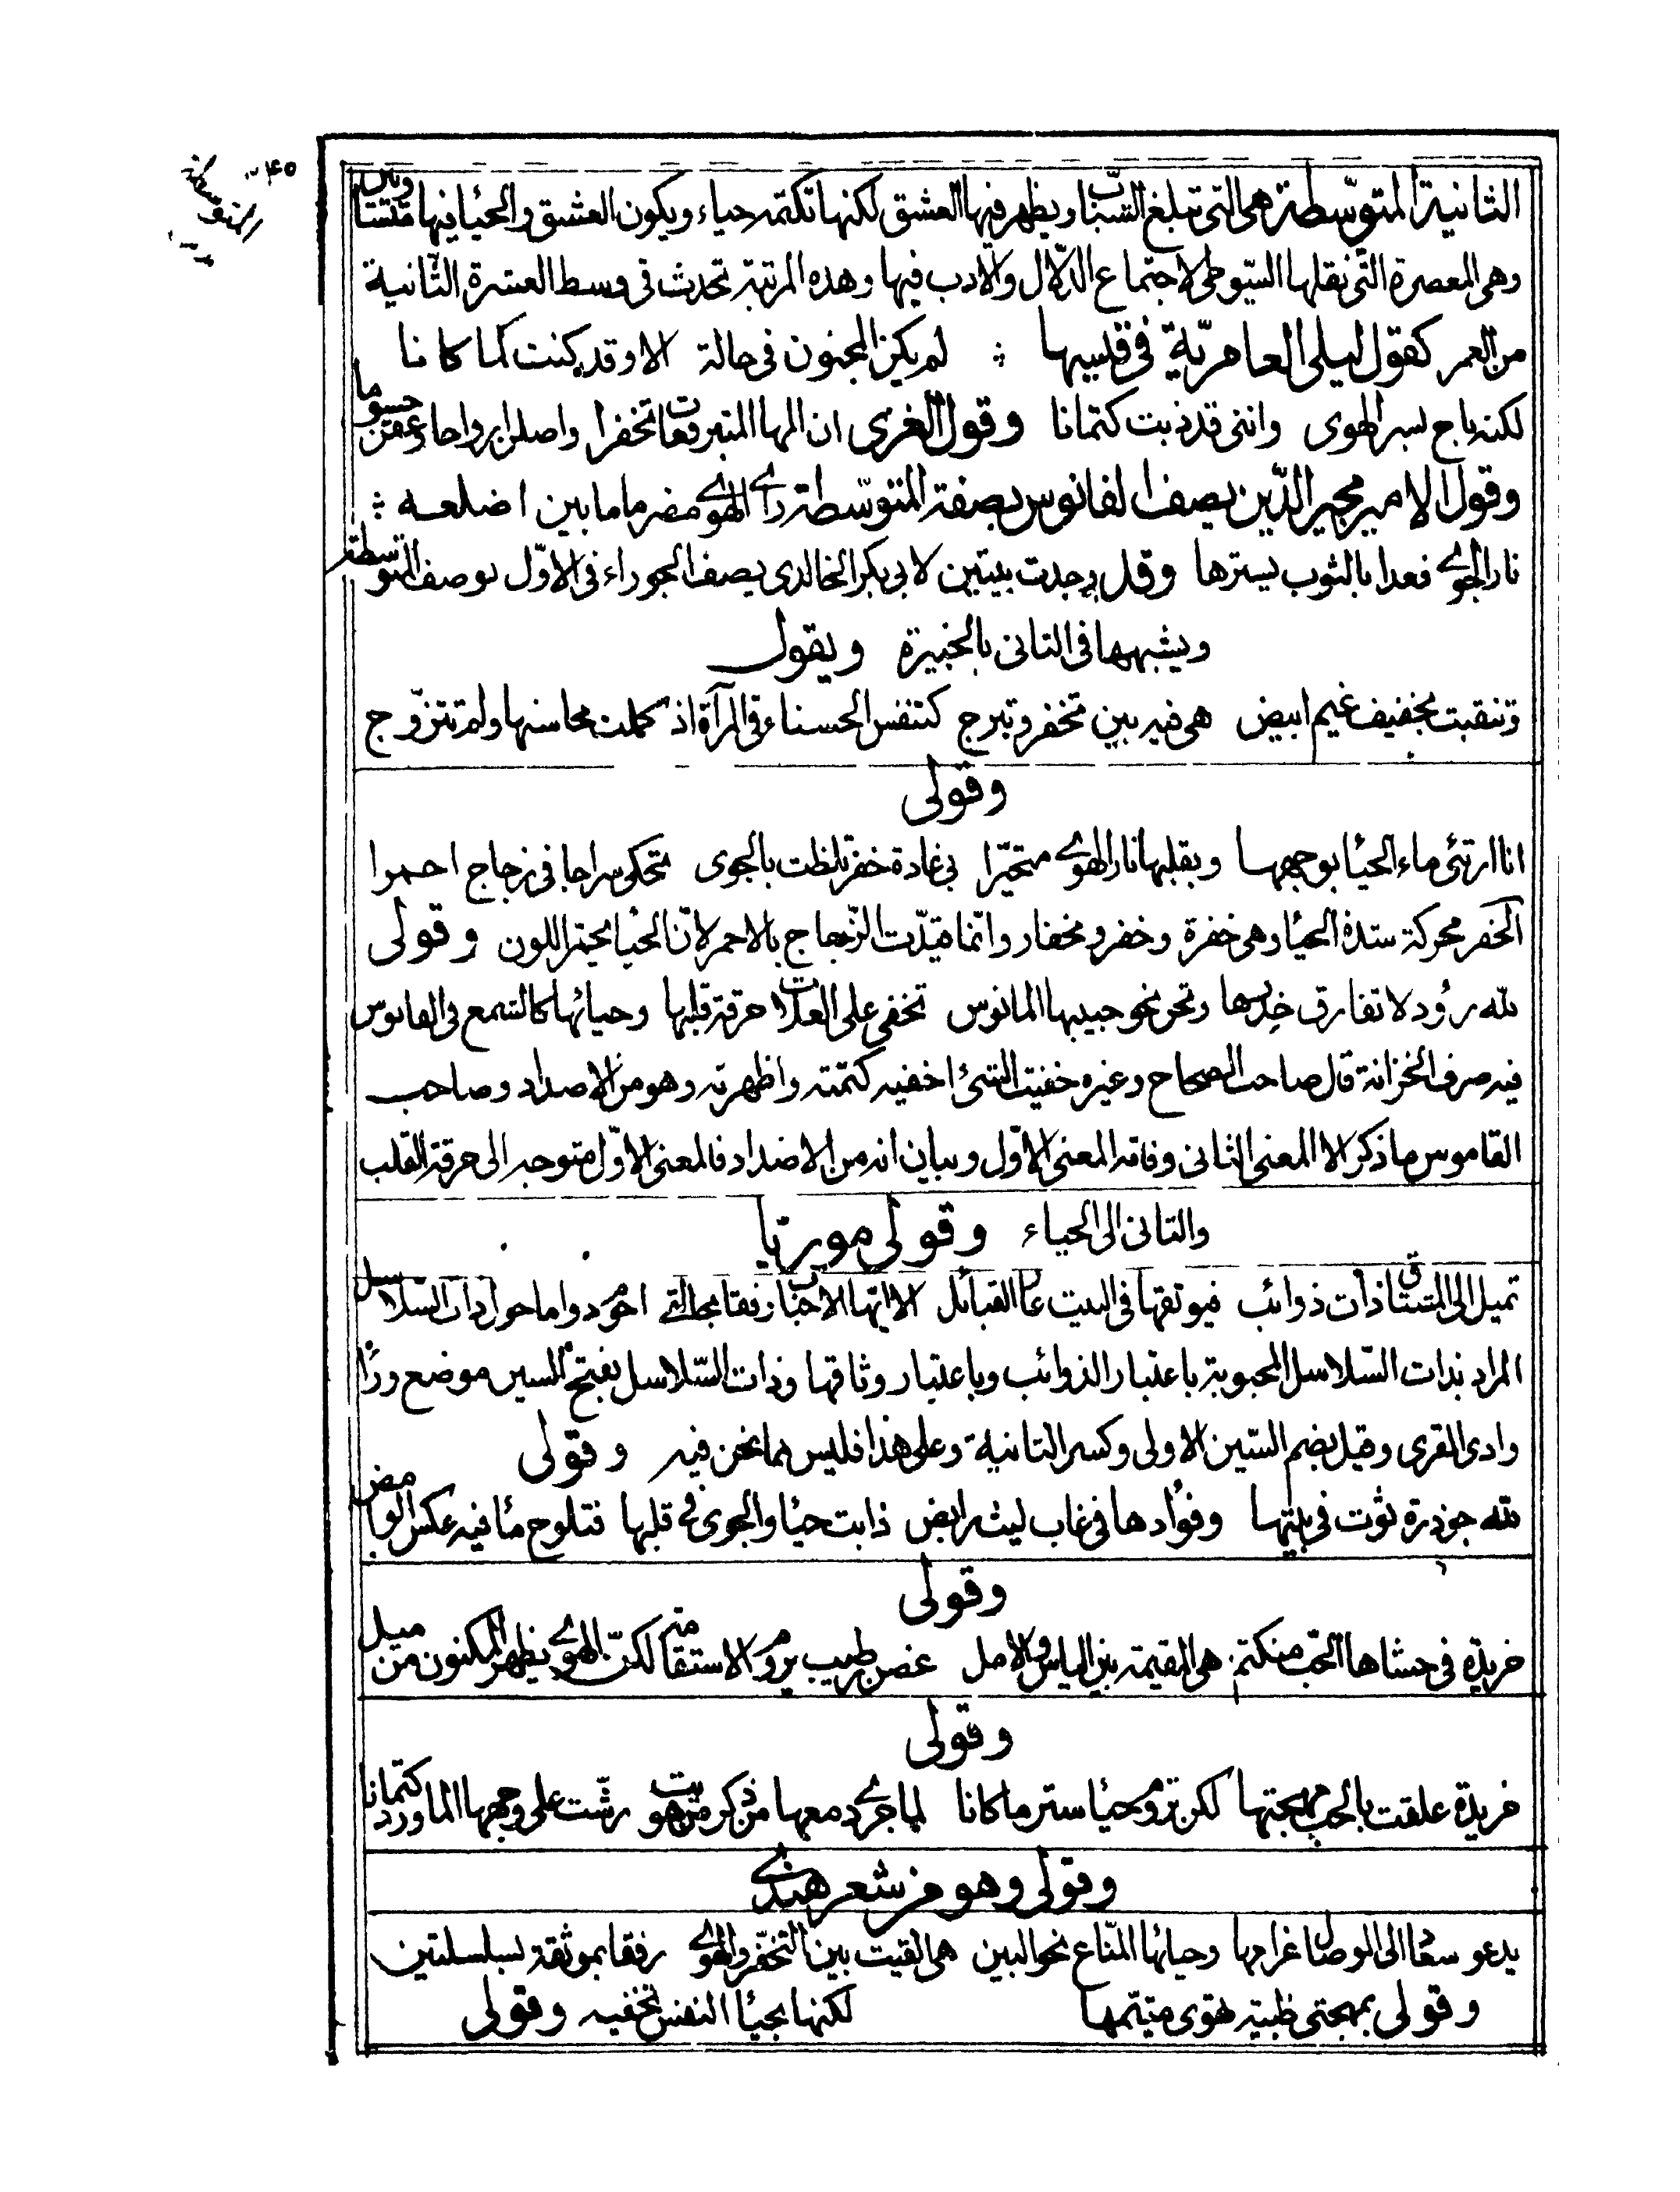 الثانية المتوسّطة هی التی تبلغ الشباب ويظهر فيها العشق لكنها تكتمه حياء ويكون العشق والحيا فيها متساويين
وهی المعصرة الّتی نقلها السّيوطی لاجتماع الدّلال والادب فيها وهذه المرتبة تحدث فی وسط العشرة الثّانية
من العمر كقول ليلی العامريّة فی قيسها لم يكن المجنون فی حالة الا وقد كنت كما كانا
لكنه باح بسر الهوی واننی قد ذبت كتمانا وقول الغزی ان المها المتبرقعات تخفرا واصلن ارواحا وعفن جسوما
وقول الامير مجير الدّين يصف الفانوس بصفة المتوسّطة رای الهوی مضرما ما بين اضلعه
نار الجوی فعدا بالثوب يسترها وقد وجدت بيتين لابی بكر الخالدی يصف الجوزاء فی الاوّل بوصف المتوسطة
ويشبهها فی الثانی بالخبيرة ويقول
وتنقبت بخفيف غيم ابيض هی فيه بين تخفر وتبرج كتنفس الحسناء فی المرآة اذ كملت محاسنها ولم تتزوّج
وقولی
انا ارتئی ماء الحيا بوجهها وبقلبها نار الهوی متحيّرا بی غادة خفرة تلظت بالجوی تحكی سراجا فی زجاج احمرا
الخفر محركة شدة الحيا وهی خفرة وخفر ومخفار وانّما قيّدت الزّجاج بالاحمر لانّ الحيا يحمر اللون وقولی
لله رؤد لا تفارق خدرها وتحن نحو حبيبها المانوس تخفی علی العلات حرقة قلبها وحيائها كالشمع فی الفانوس
فيه صرف الخزانة قال صاحب الصحاح وغيره خفيت الشئ اخفيه كتمته واظهرته وهو من الاضداد وصاحب
القاموس ما ذكر الا المعنی الثانی وفاته المعنی الاوّل وبيان انه من الاضداد فالمعنی الاوّل متوجه الی حرقة القلب
والثانی الی الحياء وقولی موريا
تميل الی العشاق ذات ذوائب فيوثقها فی البيت عار القبائل الا ايها الاحباب رفقا بحالتی احرد واما حول ذات السّلاسل
المراد بذات السّلاسل المحبوبة باعتبار الذوائب وباعتبار وثاقها وذات السّلاسل بفتح السين موضع وراء
وادی القری وقيل بضم السّين الاولی وكسر الثانية وعلی هذا فليس مما نحن فيه وقولی
لله جوذرة ثوت فی بيتها وفوادها فی غاب ليث رابض ذابت حيا والجوی فی قلبها فتلوح مافيه عكس الوامض
وقولی
خريدة فی حشاها الحب منكتم هی المقيمة بين الياس والامل غصن رطيب يروم الاستقامة لكنّ الهوی يظهر المكنون من ميل
وقولی
خريدة علقت بالحب مهجتها لكن تروم حيا ستر ما كانا لما جری دمعها من ذكر من هويت رشّت علی وجهها الماورد كتمانا
وقولی وهو من شعر هندی
يدعو سعاد الی الوصال غرامها وحيائها المنّاع نحو البين هی القيت بين التخفّر والهوی رفقا بموثقة بسلسلتين
وقولی بمهجتی ظبية تهوی متيّمها لكنها بحيا النفس تخفيه وقولی